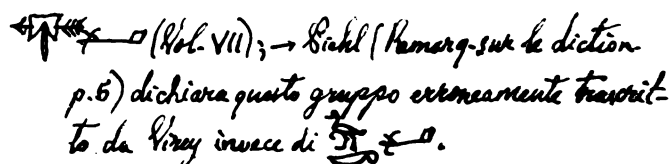 (Vol. VII); → Piehl (Remarq. sur le diction.
p. 5) dichiara questo gruppo erroneamente trascrit-
to da Virey invece di .